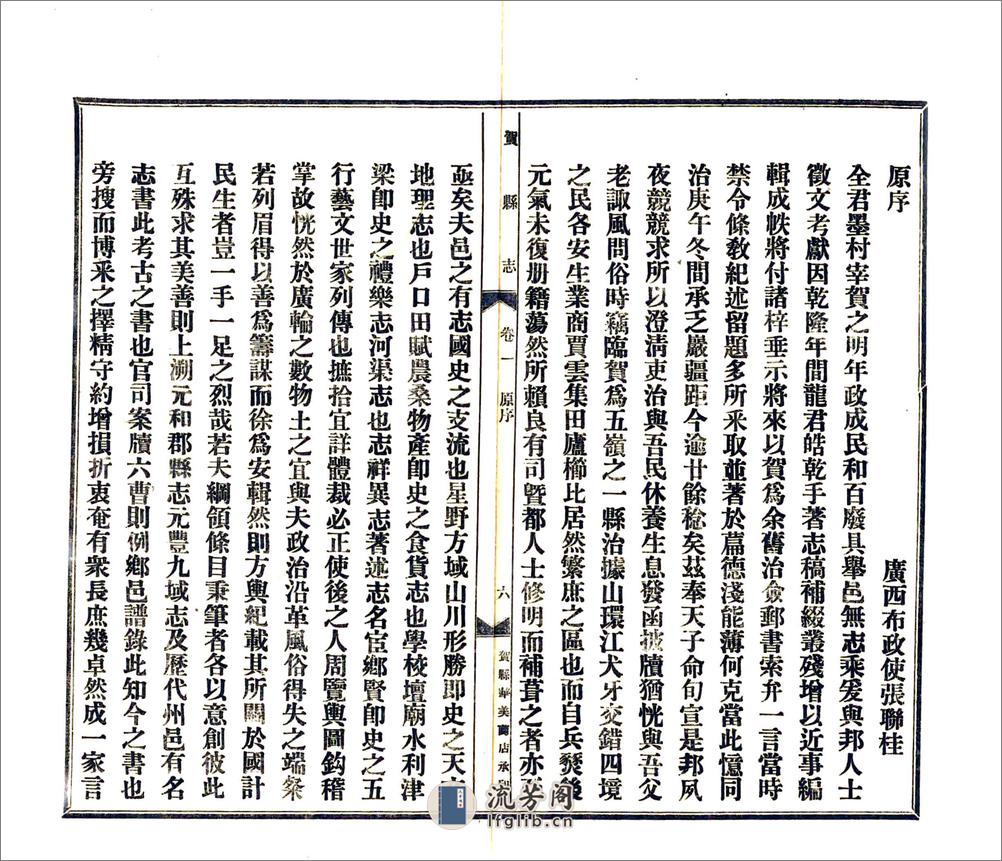 原序
廣西布政使張聯桂
全君墨村宰賀之明年政成民和百廢具舉邑無志乘爰與邦人士
徵文考獻因乾隆年間龍君皓乾手著志稿補綴叢殘增以近事編
輯成帙將付諸梓垂示將來以賀爲余舊治僉郵書索弁一言當時
禁令條敎紀述留題多所釆取並著於篇德淺能薄何克當此憶同
治庚午冬間承乏巖疆距今逾廿餘稔矣茲奉天子命旬宣是邦夙
夜兢兢求所以澄淸吏治與吾民休養生息發函披牘猶恍與吾父
老諏風問俗時竊臨賀爲五嶺之一縣治據山環江犬牙交錯四境
之民各安生業商賈雲集田廬櫛比居然繁庶之區也而自兵燹後
元氣未復册籍蕩然所賴良有司曁都人士修明而補葺之者亦
賀縣志
卷一
原序
六
賀縣華美商店承
亟矣夫邑之有志國史之支流也星野方域山川形勝即史之天
地理志也戶口田賦農桑物產卽史之食貨志也學校壇廟水利津
梁卽史之禮樂志河渠志也志祥異志著述志名宦鄉賢卽史之五
行藝文世家列傳也摭拾宜詳體裁必正使後之人周覽輿圖鈎稽
掌故恍然於廣輪之數物土之宜與夫政治沿革風俗得失之端粲
若列眉得以善爲籌謀而徐爲安輯然則方輿紀載其所關於國計
民生者豈一手一足之烈哉若夫綱領條目秉筆者各以意創彼此
互殊求其美善則上溯元和郡縣志元豐九域志及歷代州邑有名
志書此考古之書也官司案牘六曹則例鄉邑譜錄此知今之書也
旁搜而博釆之擇精守約增損折衷奄有衆長庶幾卓然成一家言
流芳阁
lfglib.cn